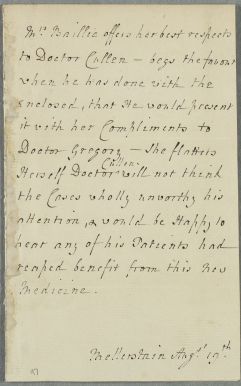 Mrs Baillie offers her best respects
to Doctor Cullen – begs the favour
when he has done with the
enclosed, that He would present
it with her Compliments to
Doctor Gregory – She flatters
Cullen
Herself Doctor will not think
the Cases wholly unworthy his
attention, & would be Happy to
hear any of his Patients had
reaped benefit from this New
Medicine.
Mellerstain Augt 19th